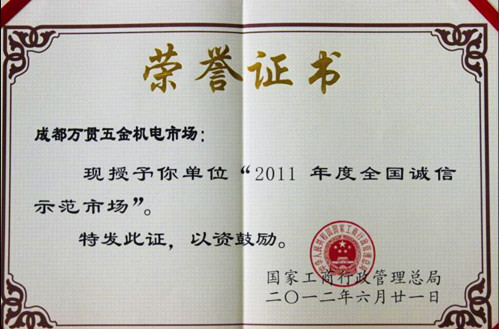 荣誉证书
成都万贯五金机电市场：
现授予你单位“2011 年度全国诚信
示范市场”。
特发此证，以资鼓励。
国家工商行政管理总局
二〇一二年六月廿一日